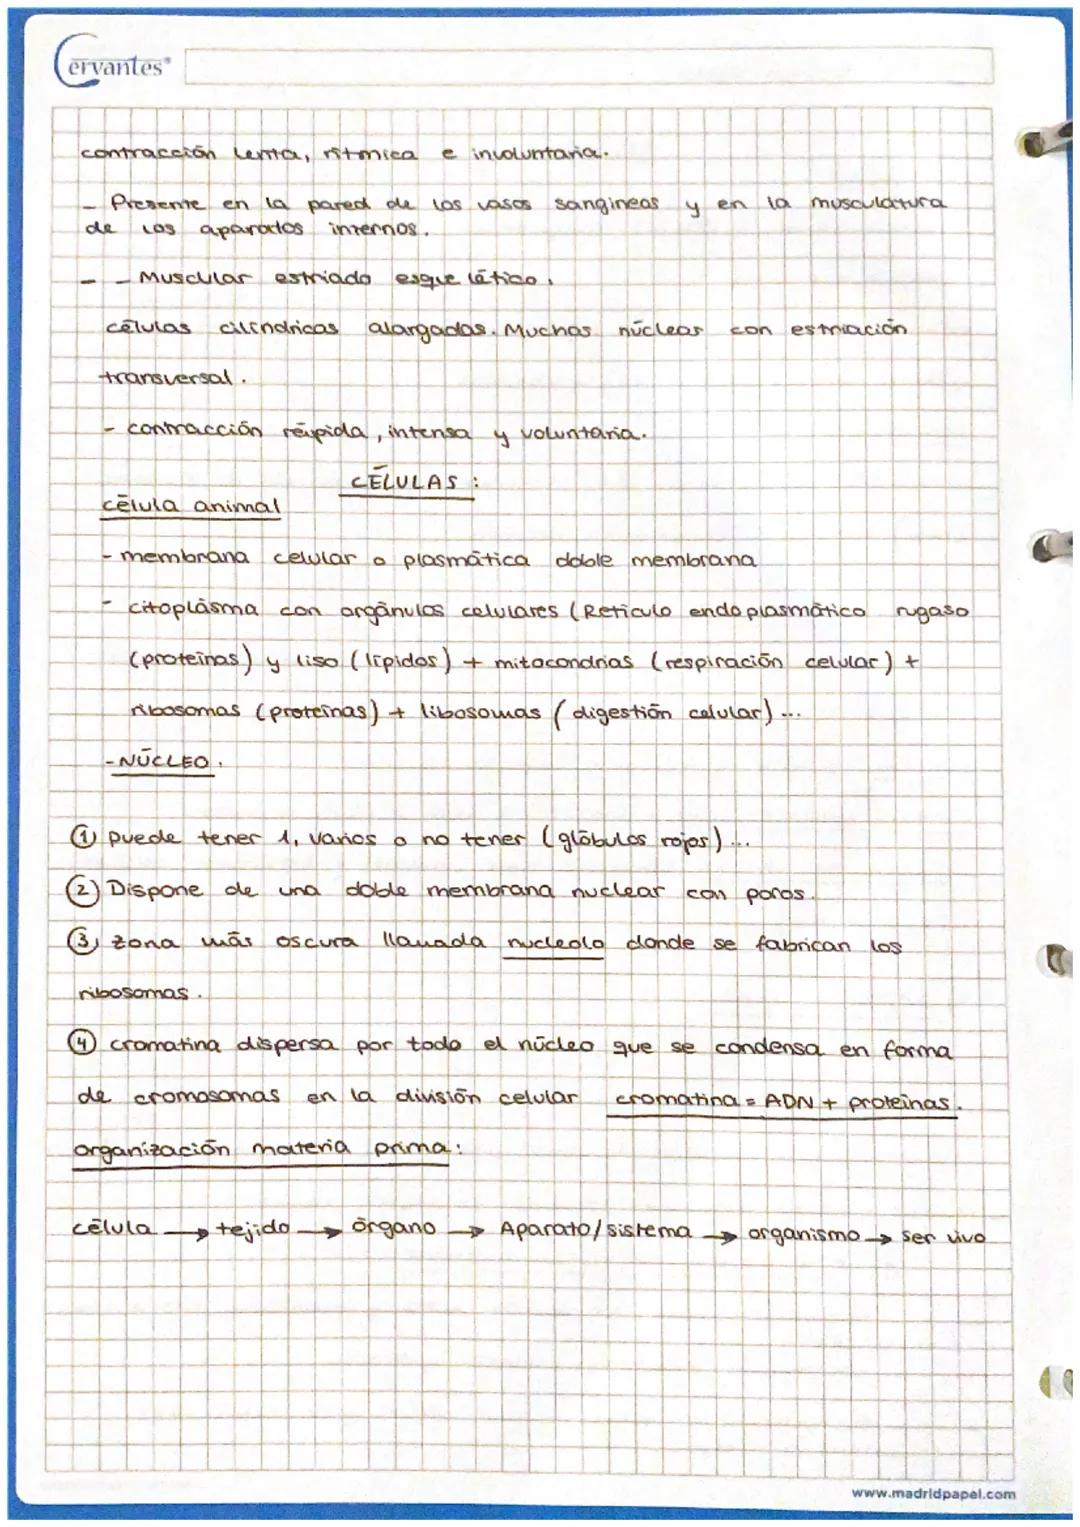 Cervantes®
contracción lenta, rítmica e involuntaria.
- Presente en la pared de los vasos sangineos y en la musculatura
de los aparatos internos.
- - Muscular estriado esquelético.
células cilíndricas alargadas. Muchos núcleos con estriación
transversal.
- contracción rápida, intensa y voluntaria.
CÉLULAS :
célula animal
- membrana celular o plasmática doble membrana
- citoplásma con orgánulos celulares (Reticulo endoplasmático rugoso
(proteínas) y liso (lípidos) + mitocondrias (respiración celular) +
ribosomas (proteínas) + libosomas (digestión celular) ...
- NÚCLEO.
① puede tener 1, varios o no tener (glóbulos rojos) ...
② Dispone de una doble membrana nuclear con poros.
③ zona más oscura llamada nucleolo donde se fabrican los
ribosomas.
④ cromatina dispersa por todo el núcleo que se condensa en forma
de cromosomas en la división celular cromatina = ADN + proteínas.
organización materia prima:
célula → tejido → órgano → Aparato/sistema → organismo → ser vivo
www.madridpapel.com